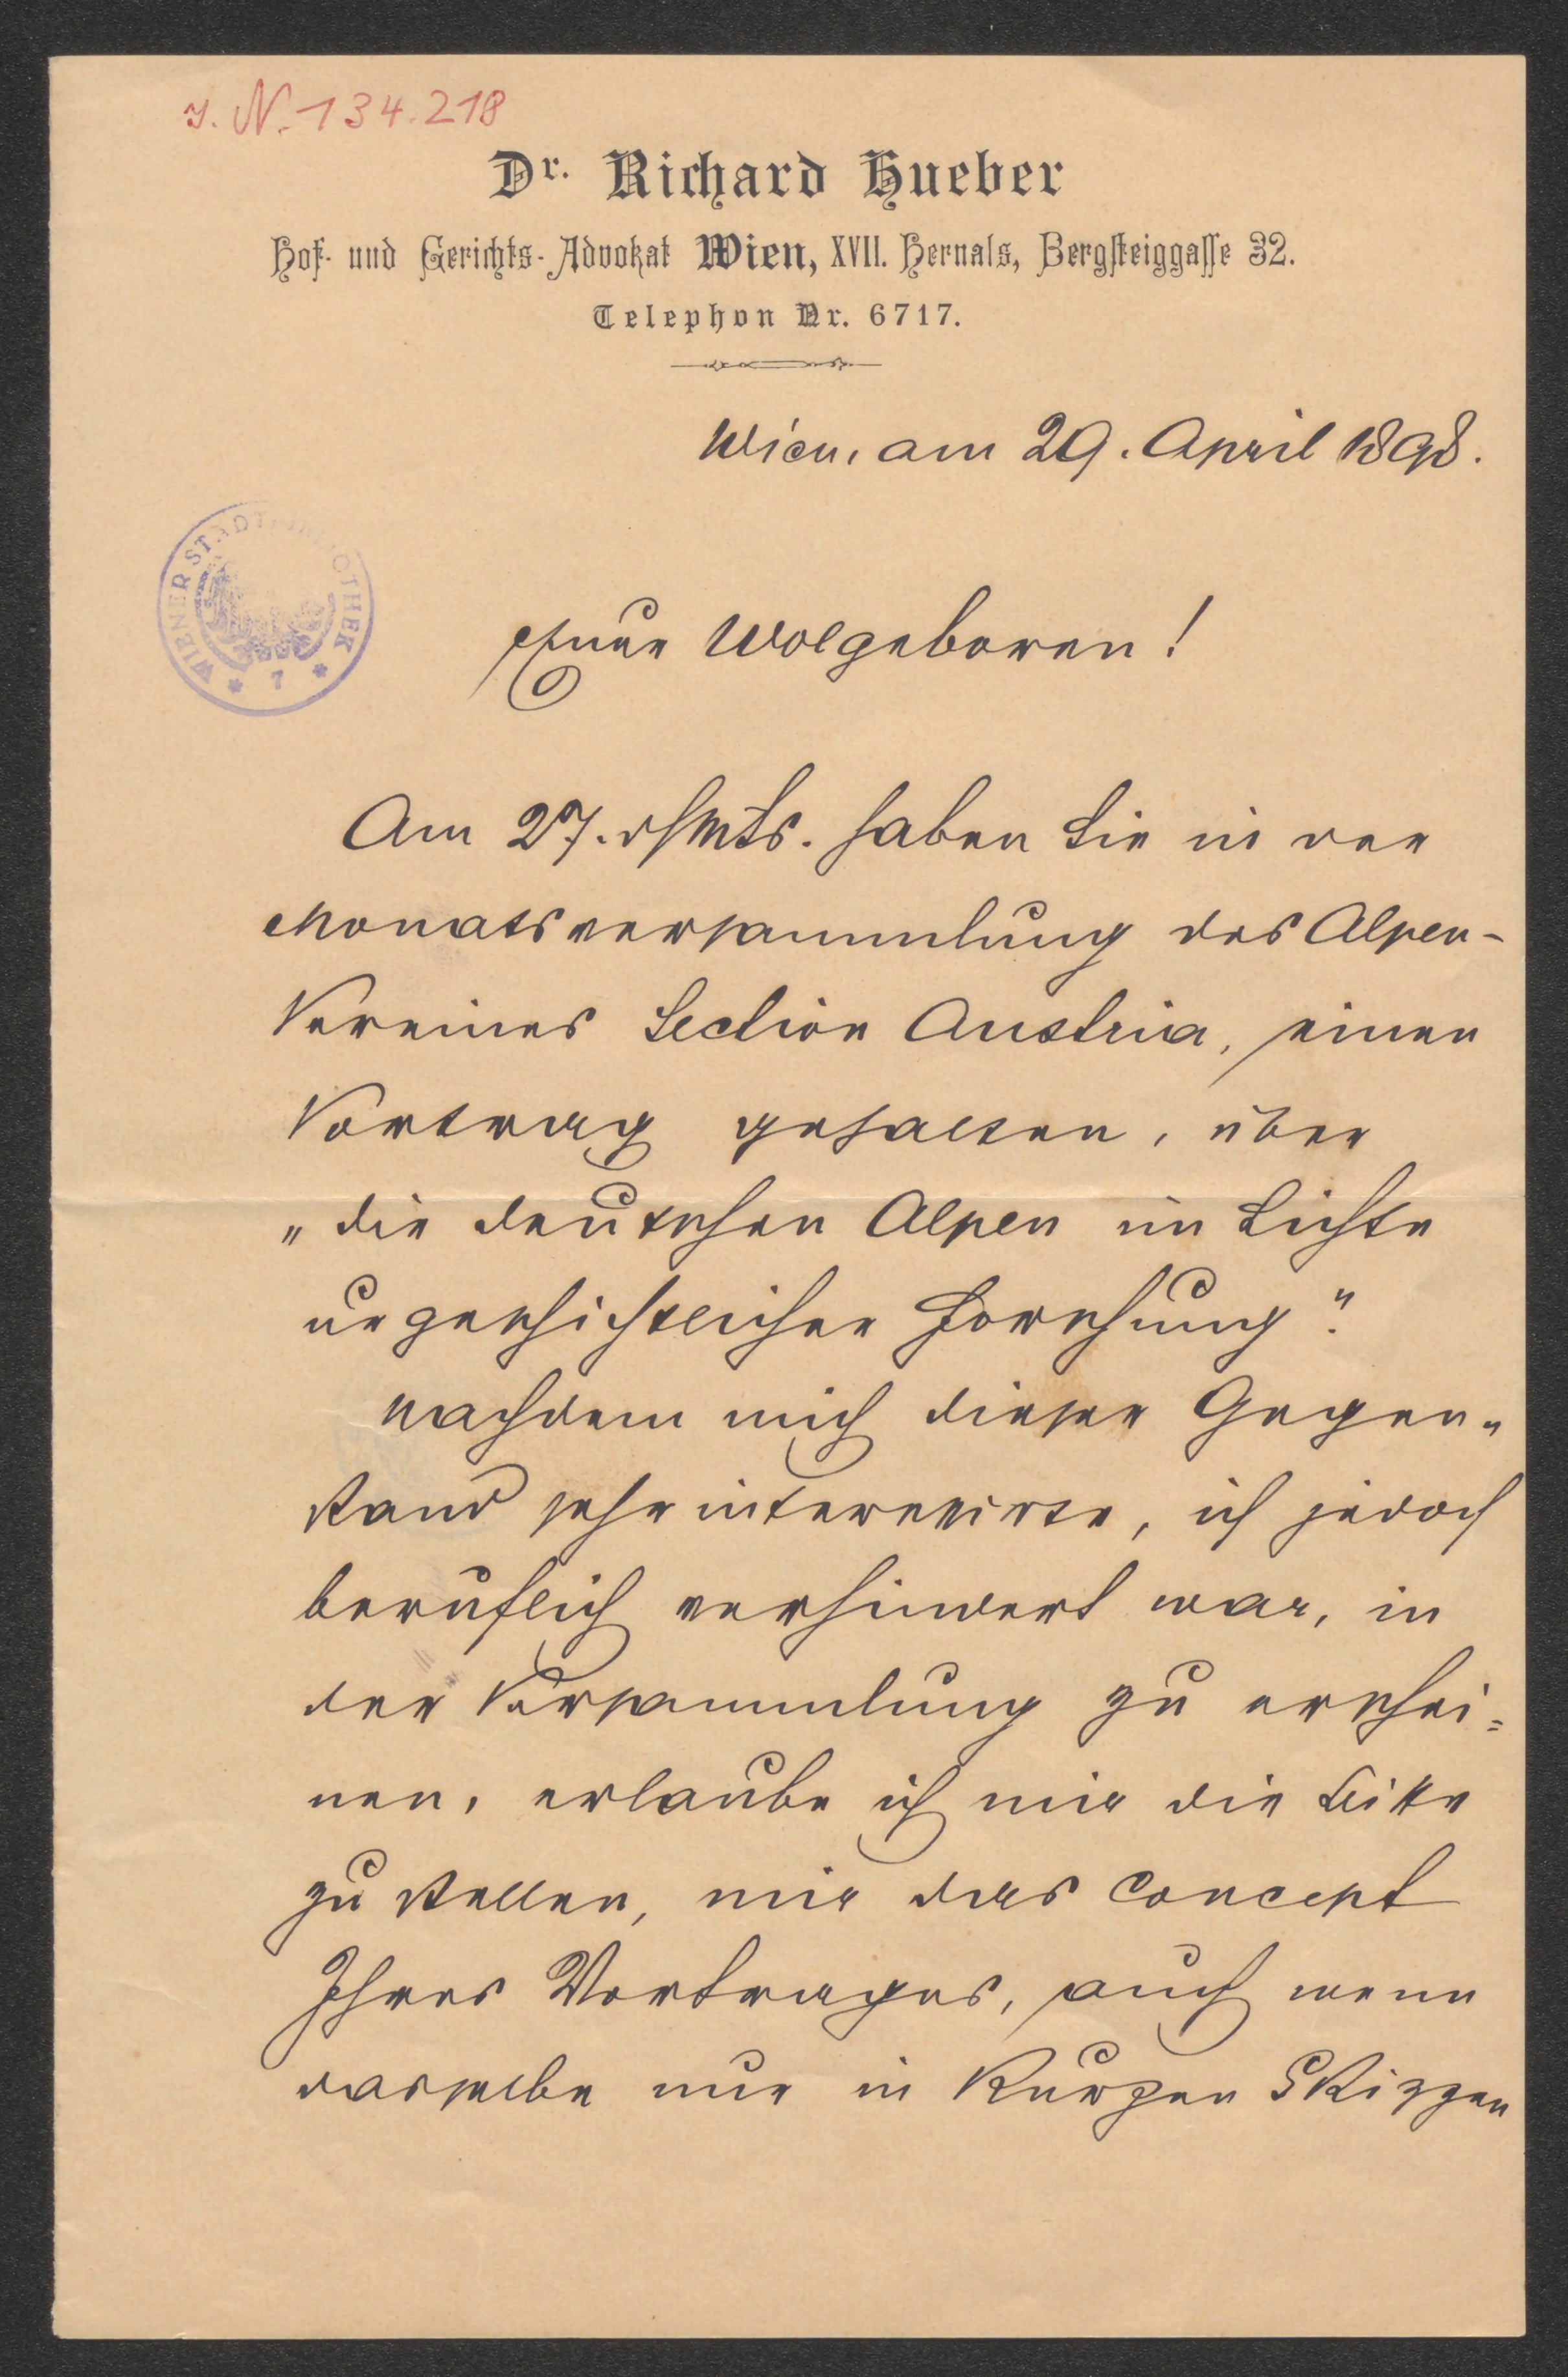 I. N. 134.218
Dr. Richard Hueber
Hof- und Gerichts-Advokat Wien, XVII. Hernals, Bergsteiggasse 32.
Telephon Nr. 6717.
Wien, am 29. April 1898.
WIENER STADTBIBLIOTHEK
* 7 *
Euer Wolgeboren!
Am 27. ds Mts. haben Sie in der
Monatsversammlung des Alpen-
Vereines Section Austria, einen
Vortrag gehalten, über
„die deutschen Alpen im Lichte
urgeschichtlicher Forschung".
Nachdem mich dieser Gegen-
stand sehr interessirte, ich jedoch
beruflich verhindert war, in
der Versammlung zu erschei=
nen, erlaube ich mir die Bitte
zu stellen, mir das Concept
Ihres Vortrages, auch wenn
dasselbe nur in kurzen Skizzen